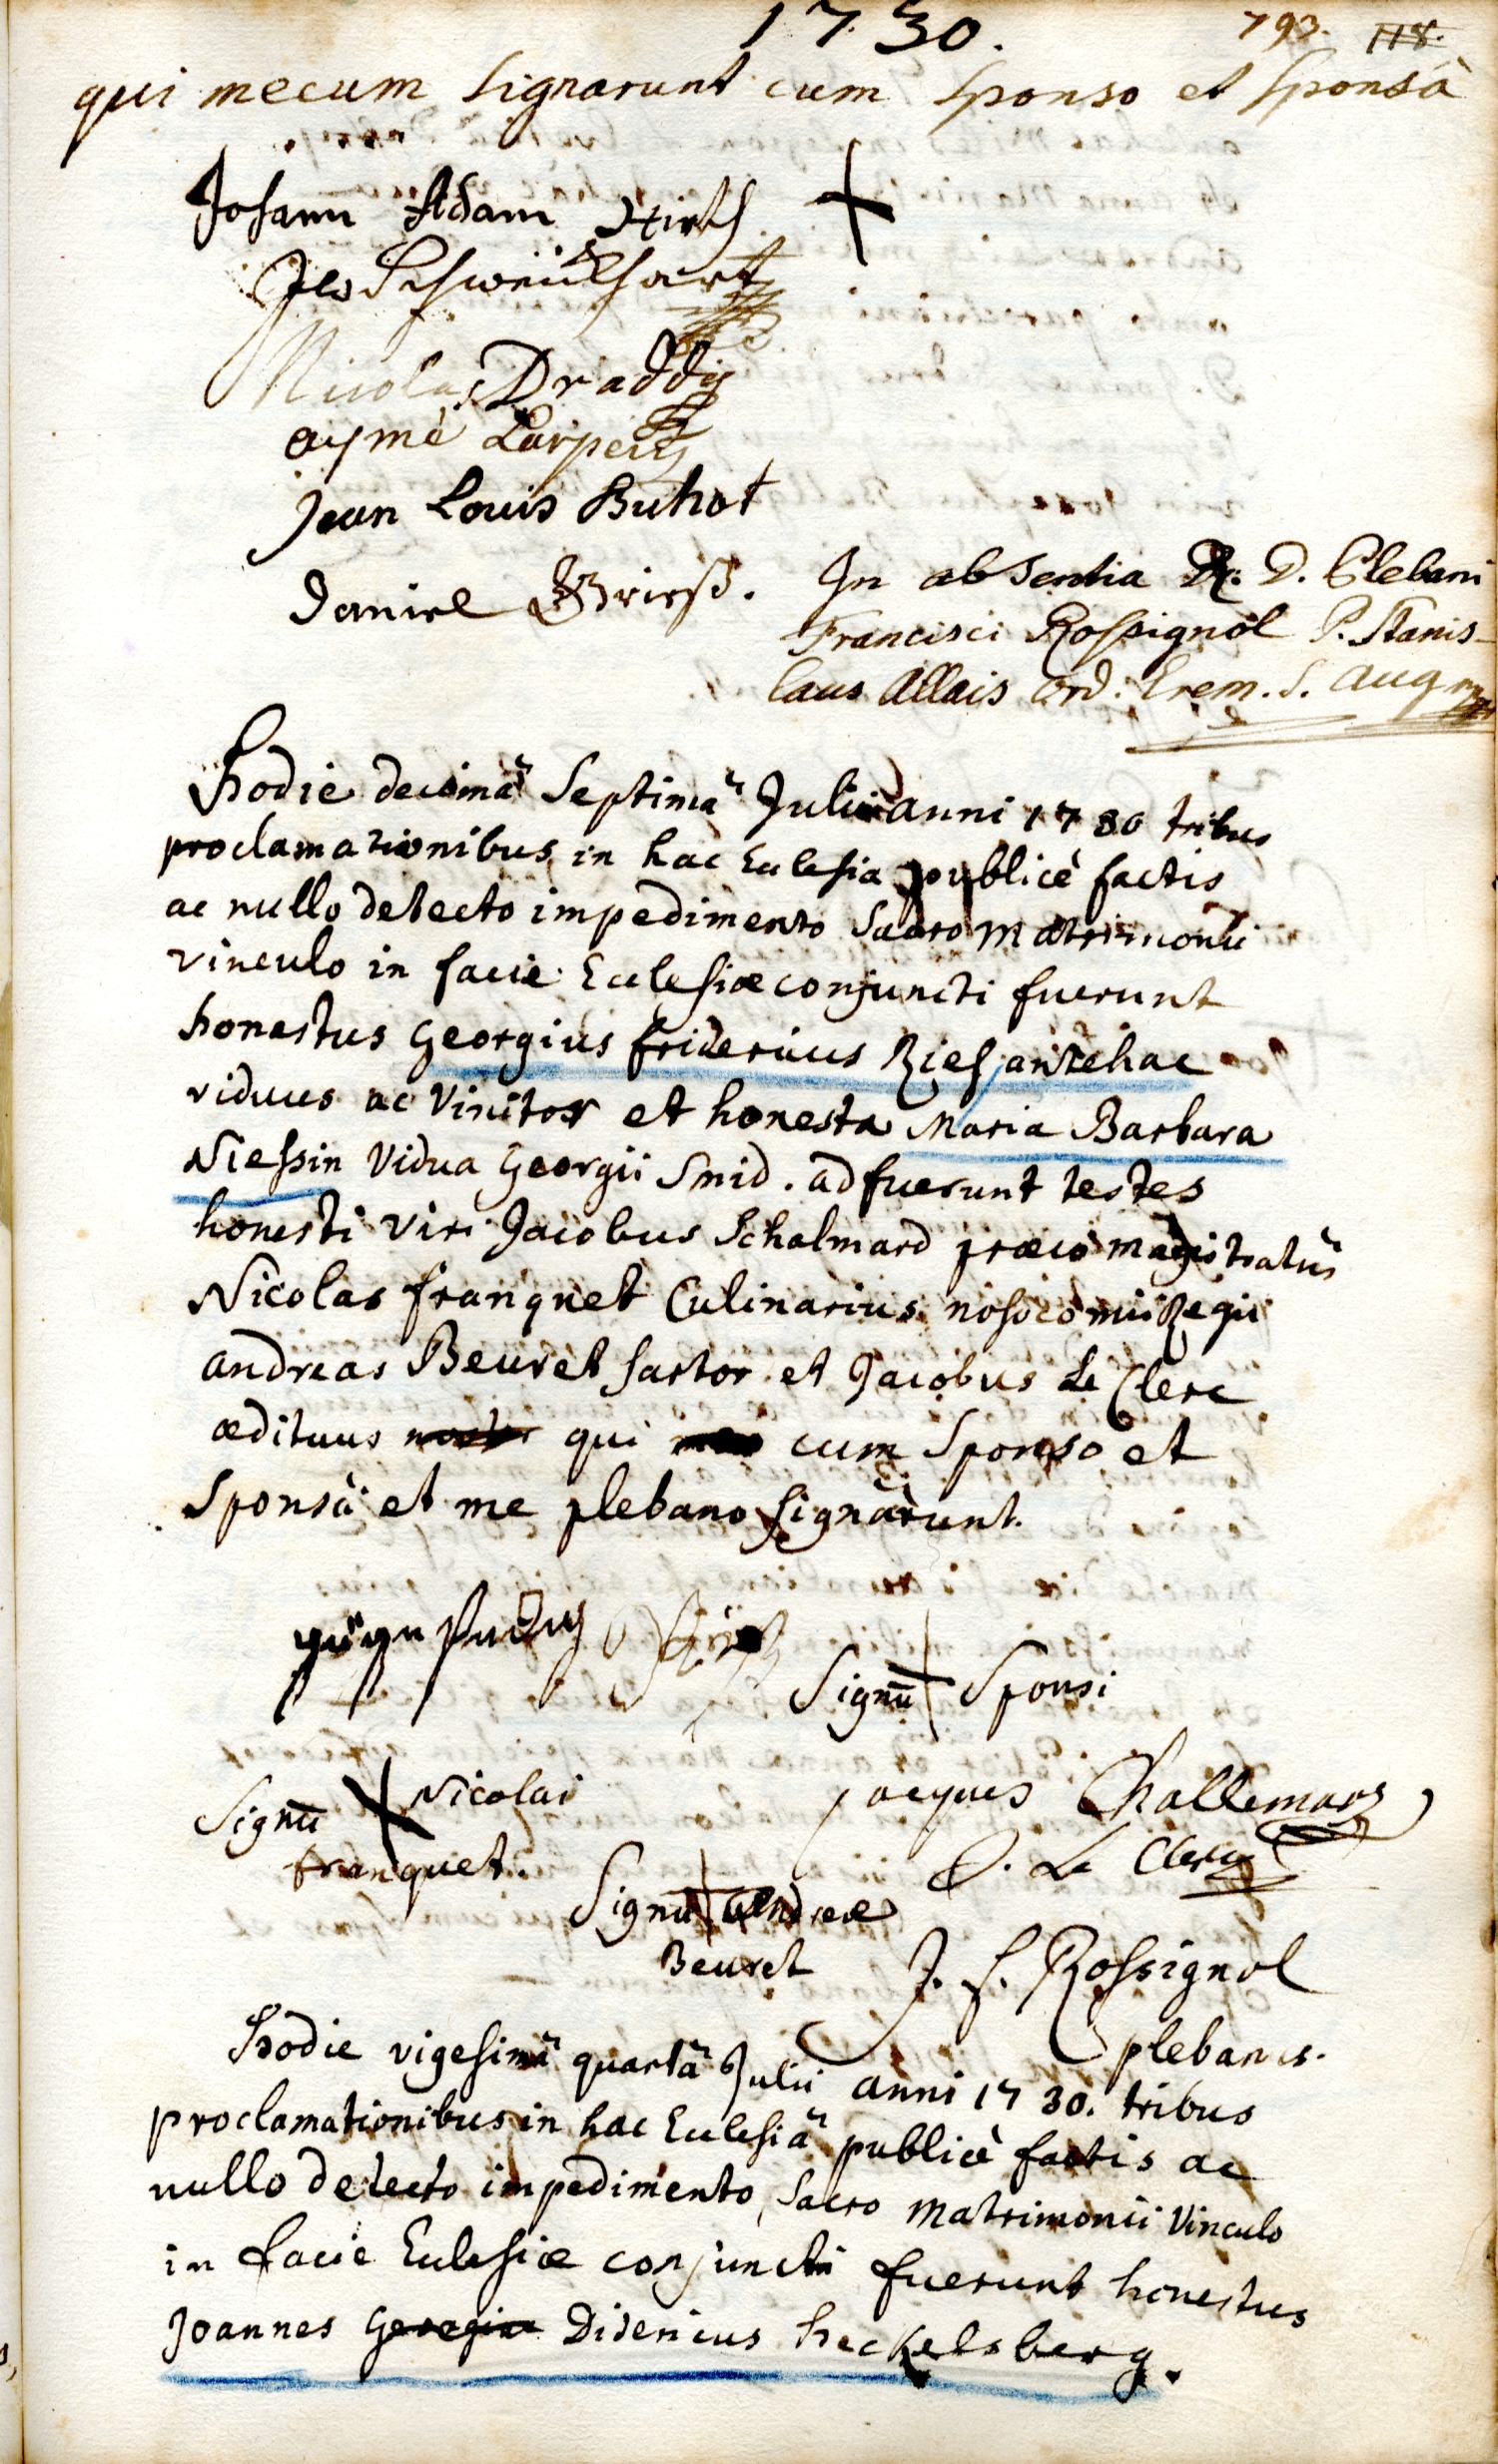 1730.
793. 118.
qui mecum signarunt cum sponso et sponsà
Johann Adam Hirth +
Schweickhart
Nicolas Draddy
aymé
Jean Louis Buhot
Daniel
In absentia R. D. Plebani
Francisci Rossignol P. Stanis-
laus Allais ord: Erem. S. Aug
Hodie decimâ Septimâ Julii anni 1730 tribus
proclamationibus in hac Ecclesia publicè factis
ac nullo detecto impedimento Sacro Matrimonii
vinculo in facie Ecclesiæ conjuncti fuerunt
honestus Georgius fridericus Ries antehac
viduus ac Vinitor et honesta Maria Barbara
Niessin Vidua Georgii Smid. adfuerunt testes
honesti viri Jacobus Schalmard præco magistratûs
Nicolas franquet Culinarius nosocomii Regii
andreas Beuret sartor et Jacobus Le Clerc
ædituus qui cum Sponso et
Sponsâ et me plebano signârunt.
Signū + Sponsi
Signū + Nicolai
franquet.
jacques Challemard
J. Le Clerc
Signū + Andreæ
Beuret
J. f. Rossignol
plebanus.
Hodie vigesimâ quartâ Julii anni 1730. tribus
proclamationibus in hac Ecclesiâ publicè factis ac
nullo detecto impedimento, Sacro Matrimonii Vinculo
in facie Ecclesiæ conjuncti fuerunt honestus
Joannes Georgius Didericus heckelsberg.